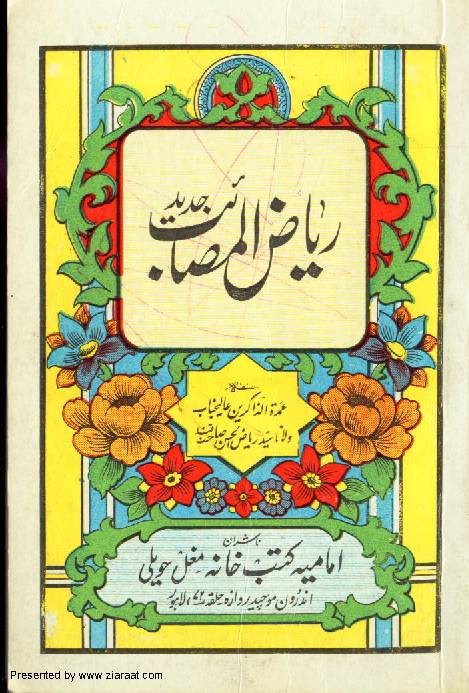 ریاض المصائب جدید
عمدۃ الذاکرین عالیجناب
مولانا سید ریاض الحسن صاحب
ناشران
امامیہ کتب خانہ مغل حویلی
اندرون موچیدروازہ حلقہ ۷۲ لاہور
Presented by www.ziaraat.com